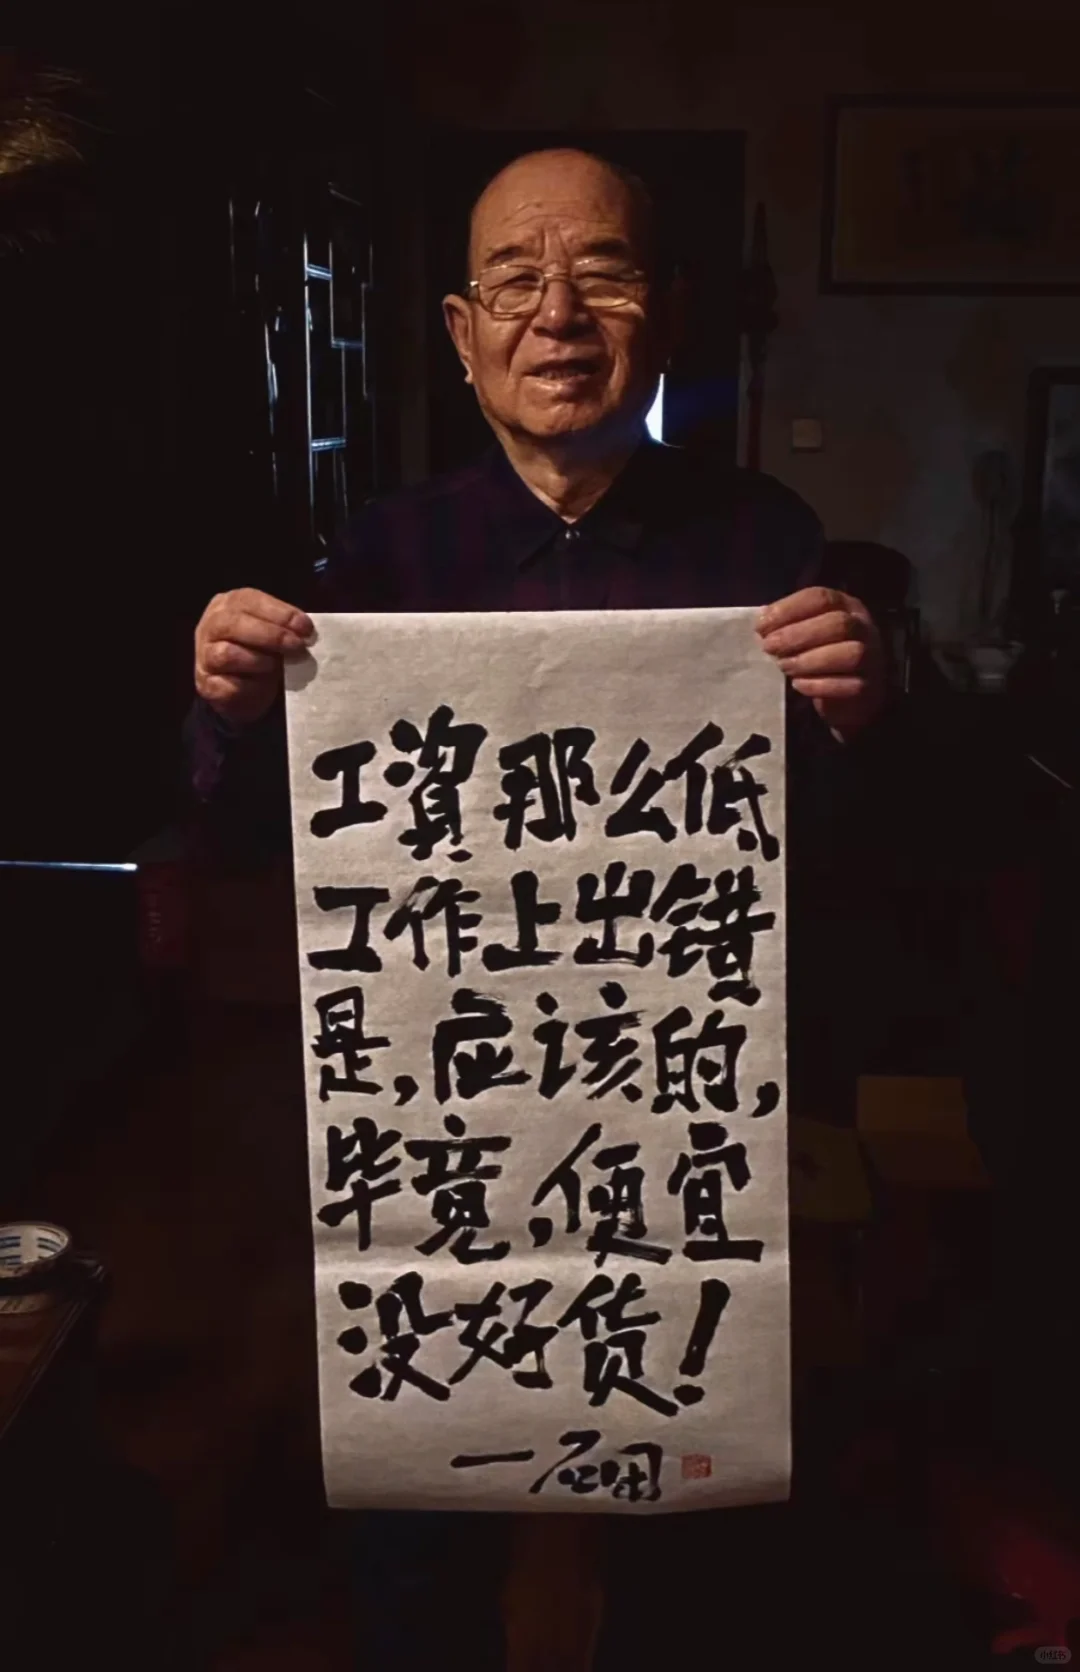 工資那么低
工作上出错
是,应该的,
毕竟,便宜
没好货!
一石田
小红书